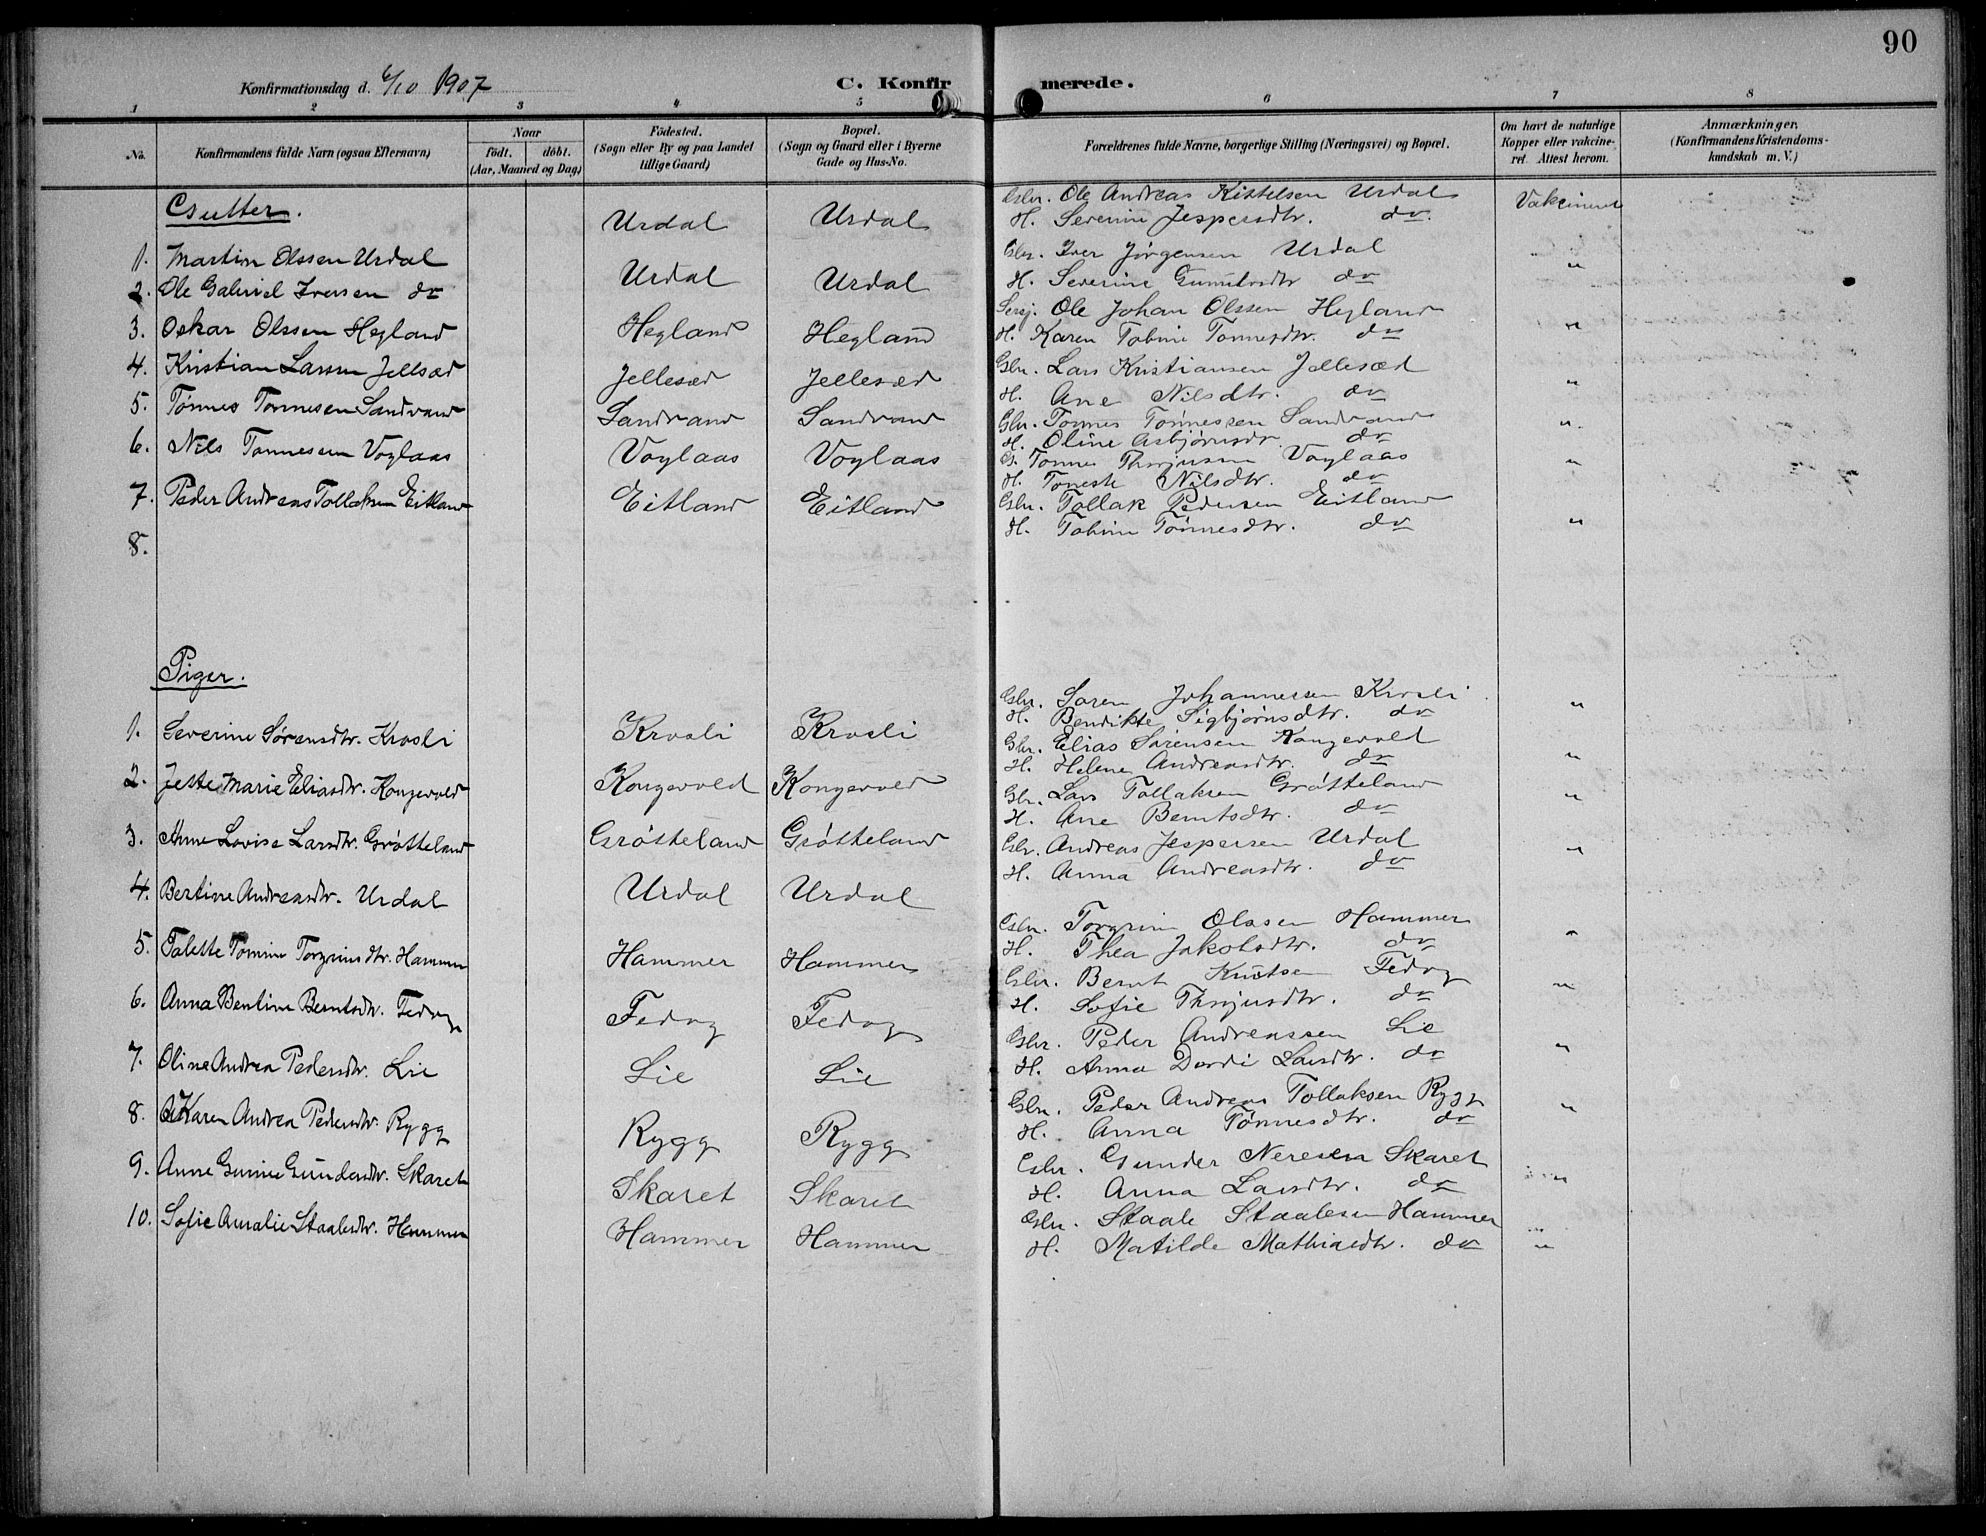 90
Konfirmationsdag d. 6/10 1907
C. Konfirmerede.
1 2 3 4 5 6 7 8
No.
Konfirmandens fulde Navn (ogsaa Efternavn)
Naar
födt. döbt.
(Aar, Maaned og Dag)
Födested.
(Sogn eller By og paa Landet
tillige Gaard)
Bopæl.
(Sogn og Gaard eller i Byerne
Gade og Hus-No.
Forældrenes fulde Navne, borgerlige Stilling (Næringsvei) og Bopæl.
Om havt de naturlige
Kopper eller vakcine-
ret. Attest herom.
Anmærkninger.
(Konfirmandens Kristendoms-
kundskab m. V.)
Gutter.
1. Martin Olssen Urdal Urdal Urdal Gbr. Ole Andreas Kittelsen Urdal Vakcineret
H. Severine Jespersdtr. do
2. Ole Gabriel Iversen do Urdal Urdal Gbr. Iver Jørgensen Urdal "
H. Severine Gunuldsdtr do
3. Oskar Olssen Hegland Hegland Hegland Ole Johan Olssen Hegland "
H. Karen Tobine Tonnesdtr. do
4. Kristian Larsen Jellsæd Jellesæd Jellesæd Gbr. Lars Kristiansen Jellesæd "
H. Ane Nilsdtr. do
5. Tønnes Tonnesen Sandvand Sandvand Sandvand Gbr. Tonnes Tønnessen Sandvand "
H. Oline Asbjørnsdr do
6. Nils Tonnessen Voglaas Voglaas Voglaas G. Tonnes Thorjussen Voglaas "
H. Toneste Nilsdtr. do
7. Peder Andreas Tollaksen Eitland Eitland Eitland Gbr. Tollak Pedersen Eitland
H. Tobine Tønnesdtr. do "
8.
Piger.
1. Severine Sørensdtr. Krosli Krosli Krosli Gbr. Soren Johannessen Krosli "
H. Bendikte Sigbjørnsdtr. do
2. Jette Marie Eliasdtr. Kongevold Kongevold Kongevold Gbr. Elias Sørensen Kongevold "
H. Helene Andreasdtr. do
3. Anne Lovise Larsdtr. Grøtteland Grøtteland Grøtteland Gbr. Lars Tollaksen Grøtteland "
H. Ane Berntsdtr. do
4. Bertine Andreasdtr. Urdal Urdal Urdal Gbr. Andreas Jespersen Urdal "
H. Anna Andreasdtr. do
5. Talette Tomine Torgrimsdtr. Hammer Hammer Hammer Gbr. Torgrim Olssen Hammer "
H. Thea Jakobsdtr. do
6. Anna Bentine Berntsdtr. Fedog Fedog Fedog Gbr. Bernt Knutsen Fedog "
H. Sofie Thorjusdtr. do
7. Oline Andrea Pedersdtr. Lie Lie Lie Gbr. Peder Andreassen Lie "
H. Anna Dordi Larsdtr. do
8. Karen Andrea Pedersdtr. Rygg Rygg Rygg Gbr. Peder Andreas Tollaksen Rygg "
H. Anna Tønnesdtr. do
9. Anne Gurine Gundersdtr. Skaret Skaret Skaret Gbr. Gunder Neresen Skaret "
H. Anna Larsdtr. do
10. Sofie Amalie Staalesdtr. Hammer Hammer Hammer Gbr. Staale Staalesen Hammer
H. Matilde Mathiasdtr. do "